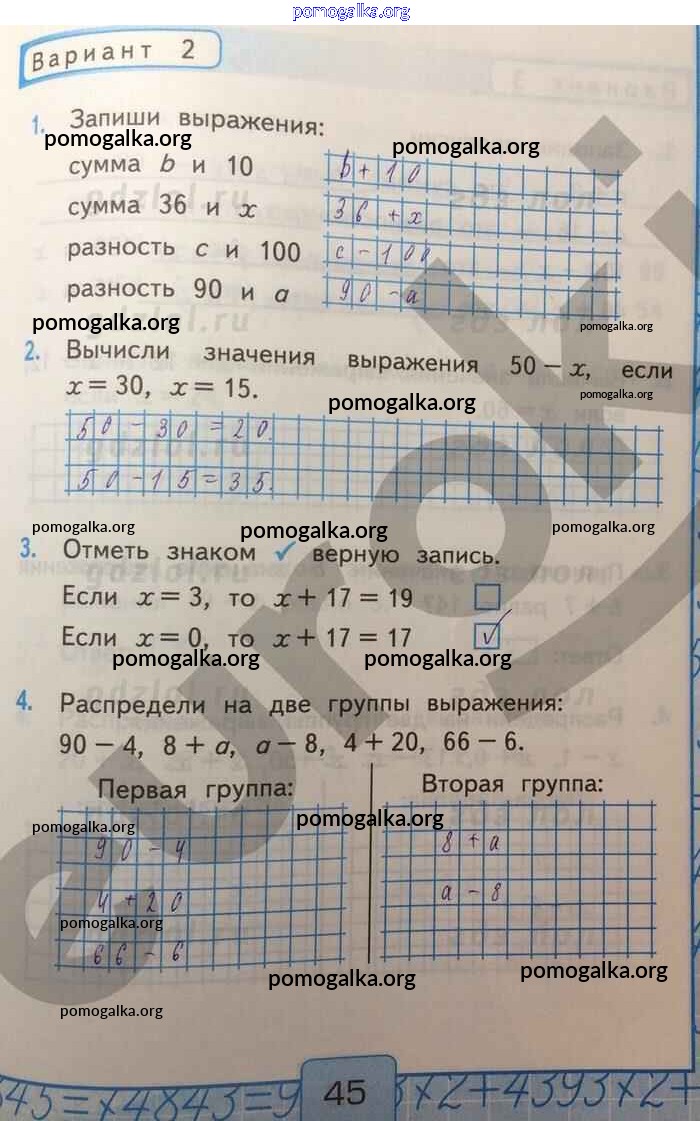 pomogalka.org
Вариант 2
1. Запиши выражения:
pomogalka.org pomogalka.org
сумма b и 10 b + 10
сумма 36 и x 36 + x
разность c и 100 c - 100
разность 90 и a 90 - a
pomogalka.org pomogalka.org
2. Вычисли значения выражения 50 – x, если
x = 30, x = 15.
pomogalka.org pomogalka.org
50 - 30 = 20.
50 - 15 = 35.
pomogalka.org pomogalka.org pomogalka.org
3. Отметь знаком ✓ верную запись.
Если x = 3, то x + 17 = 19
Если x = 0, то x + 17 = 17 ✓
pomogalka.org pomogalka.org
4. Распредели на две группы выражения:
90 – 4, 8 + a, a – 8, 4 + 20, 66 – 6.
Первая группа: Вторая группа:
pomogalka.org pomogalka.org
90 - 4 8 + a
4 + 20 a - 8
pomogalka.org
66 - 6
pomogalka.org pomogalka.org
pomogalka.org
45
euroki